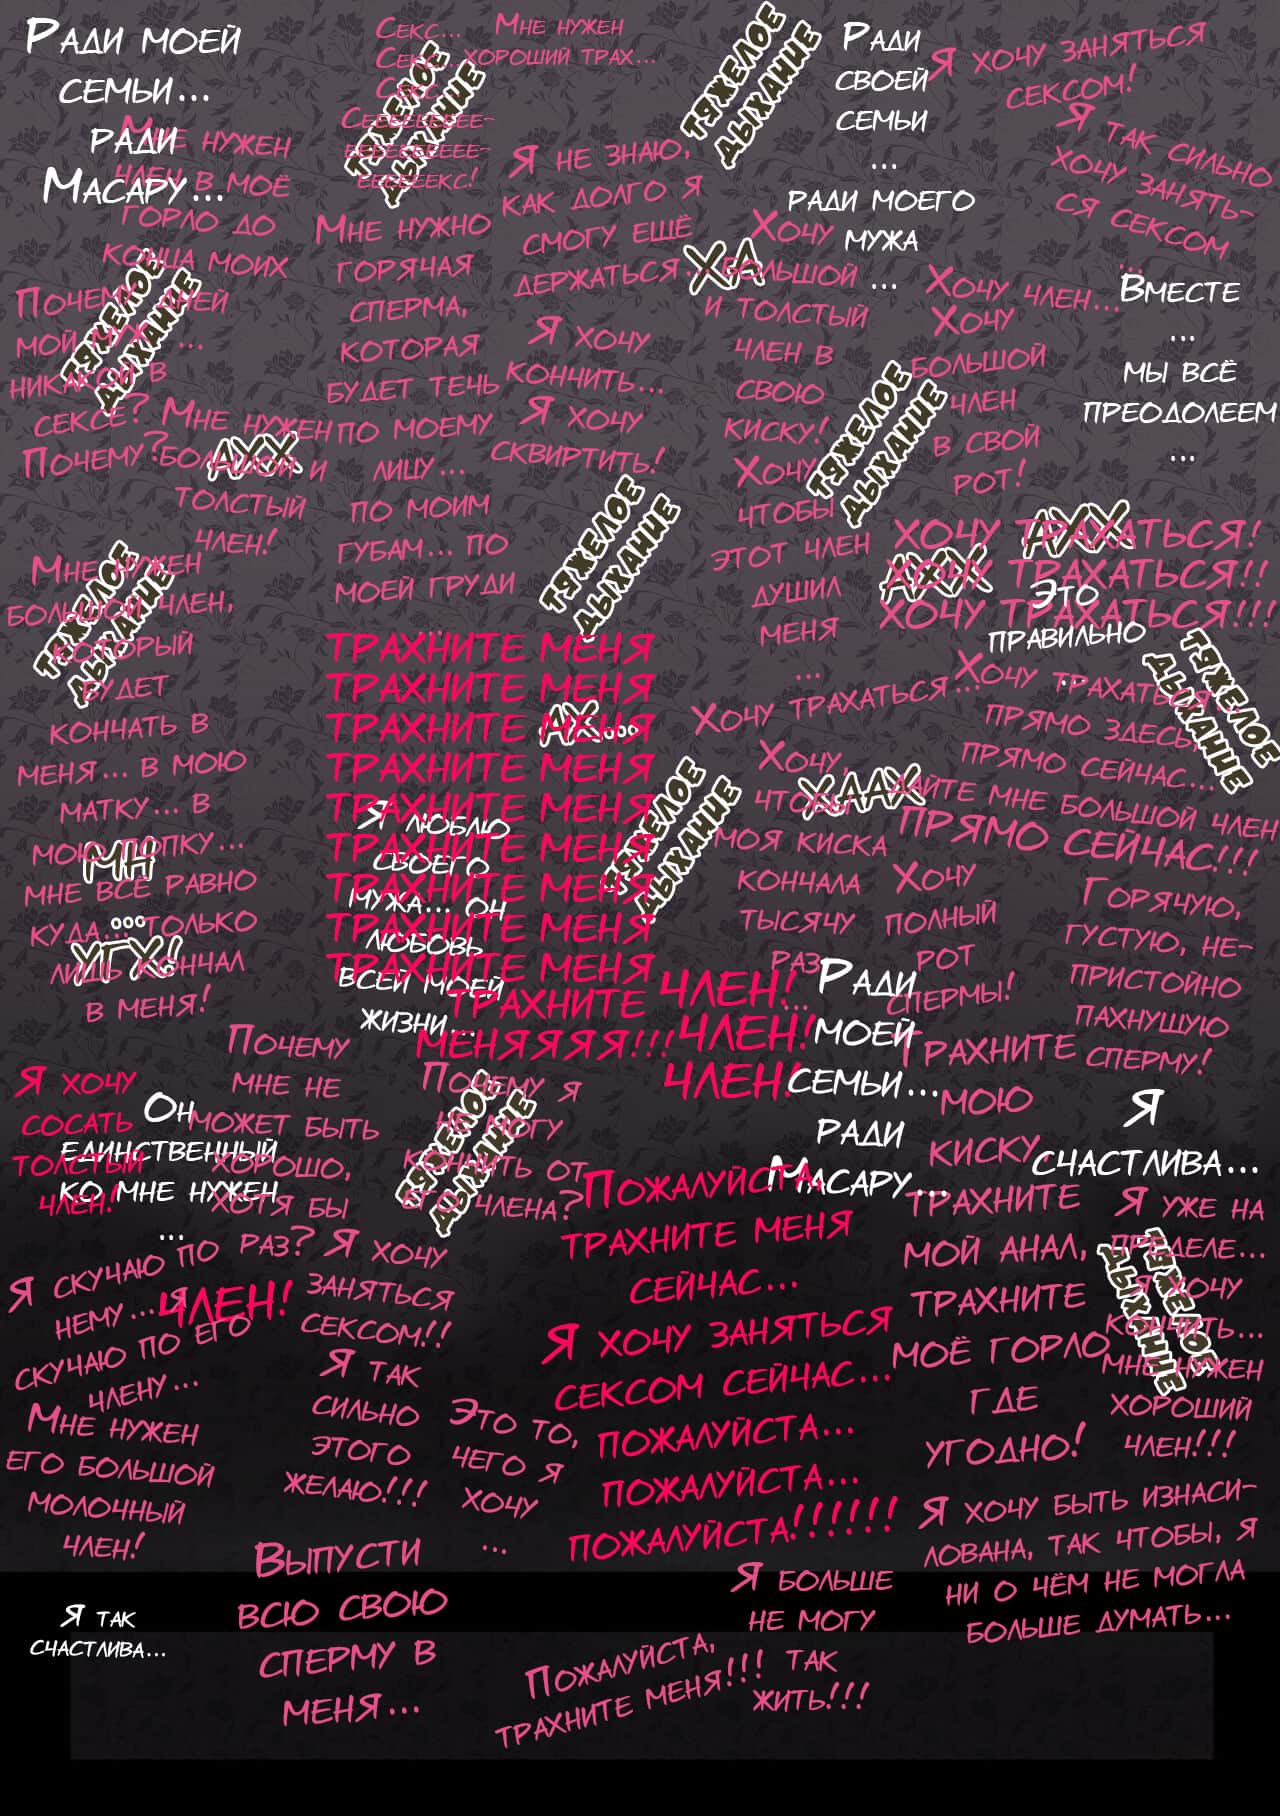 Ради моей
семьи...
ради
Масару...
Секс...
Секс...
Секс...
Сеееееееееее-
ееееееееееее-
еееееекс!
Мне нужен
хороший трах...
тяжелое
дыхание
тяжелое
дыхание
Ради
своей
семьи
...
ради моего
мужа
...
Я хочу заняться
сексом!
Я так сильно
хочу занять-
ся сексом
...
Мне нужен
член в моё
горло до
конца моих
дней
...
Я не знаю,
как долго я
смогу ещё
держаться...
Мне нужно
горячая
сперма,
которая
будет течь
по моему
лицу...
по моим
губам... по
моей груди
...
ХА
Хочу
большой
и толстый
член в
свою
киску!
Хочу
чтобы
этот член
душил
меня
...
Хочу член...
Хочу
большой
член
в свой
рот!
Вместе
...
мы всё
преодолеем
...
Почему
мой муж
никакой в
сексе?
Почему?
тяжелое
дыхание
Я хочу
кончить...
Я хочу
сквиртить!
Мне нужен
большой и
толстый
член!
АХХ
тяжелое
дыхание
тяжелое
дыхание
АХХ
АХХ
ХОЧУ ТРАХАТЬСЯ!
ХОЧУ ТРАХАТЬСЯ!!
ХОЧУ ТРАХАТЬСЯ!!!
Это
правильно
...
Мне нужен
большой член,
который
будет
кончать в
меня... в мою
матку... в
мою попку...
мне всё равно
куда... только
лишь кончал
в меня!
тяжелое
дыхание
ТРАХНИТЕ МЕНЯ
ТРАХНИТЕ МЕНЯ
ТРАХНИТЕ МЕНЯ
ТРАХНИТЕ МЕНЯ
ТРАХНИТЕ МЕНЯ
ТРАХНИТЕ МЕНЯ
ТРАХНИТЕ МЕНЯ
ТРАХНИТЕ МЕНЯ
ТРАХНИТЕ МЕНЯ
ТРАХНИТЕ
МЕНЯЯЯЯ!!!
АХ...
Я люблю
своего
мужа... он
любовь
всей моей
жизни...
тяжелое
дыхание
Хочу трахаться...
Хочу трахаться
прямо здесь,
прямо сейчас...
дайте мне большой член
ПРЯМО СЕЙЧАС!!!
тяжелое
дыхание
Хочу,
чтобы
моя киска
кончала
тысячу
раз
...
ХААХ
Хочу
полный
рот
спермы!
Горячую,
густую, не-
пристойно
пахнущую
сперму!
МН
...
УГХ!
ЧЛЕН!
ЧЛЕН!
ЧЛЕН!
Ради
моей
семьи...
ради
Масару...
Я хочу
сосать
толстый
член!
Он
единственный
ко мне нужен
...
Почему
мне не
может быть
хорошо,
хотя бы
раз?
Почему я
не могу
кончить от
его члена?
тяжелое
дыхание
Трахните
мою
киску,
трахните
мой анал,
трахните
моё горло
где
угодно!
Я
счастлива...
Я уже на
пределе...
Я хочу
кончить...
мне нужен
хороший
член!!!
тяжелое
дыхание
Пожалуйста,
трахните меня
сейчас...
Я хочу заняться
сексом сейчас...
пожалуйста...
пожалуйста...
пожалуйста!!!!!!
Я скучаю по
нему... Я
скучаю по его
члену...
ЧЛЕН!
Я хочу
заняться
сексом!!
Я так
сильно
этого
желаю!!!
Мне нужен
его большой
молочный
член!
Это то,
чего я
хочу
...
Я хочу быть изнаси-
лована, так чтобы, я
ни о чём не могла
больше думать...
Выпусти
всю свою
сперму в
меня...
Я больше
не могу
так
жить!!!
Я так
счастлива...
Пожалуйста,
трахните меня!!!